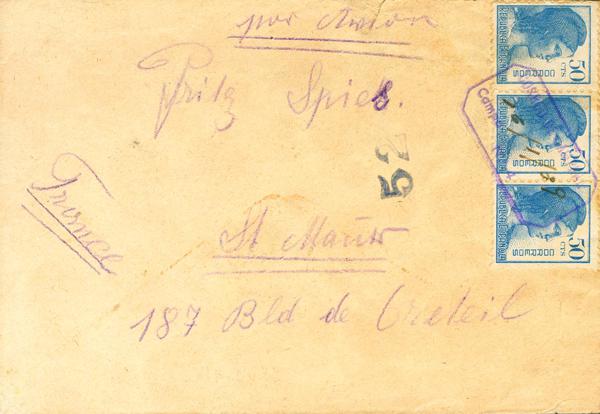 por Avion
Fritz Spieb.
52
France
St Maur
187 Bld de Creteil
REPUBLICA ESPAÑOLA
50
CTS
CORREOS
REPUBLICA ESPAÑOLA
50
CTS
CORREOS
REPUBLICA ESPAÑOLA
50
CTS
CORREOS